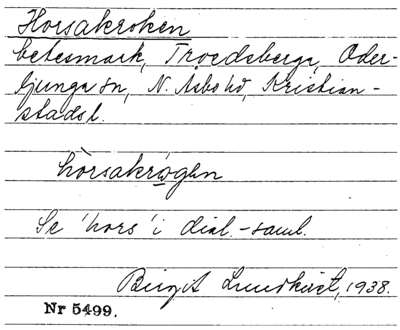 Horsakroken
betesmark, Troedsberga, Oder-
ljunga sn, N. Åsbo hd, Kristian-
stads l.
hòrsakrógen
Se 'hors' i dial.-saml.
Birgit Lundkvist, 1938.
Nr 5499.